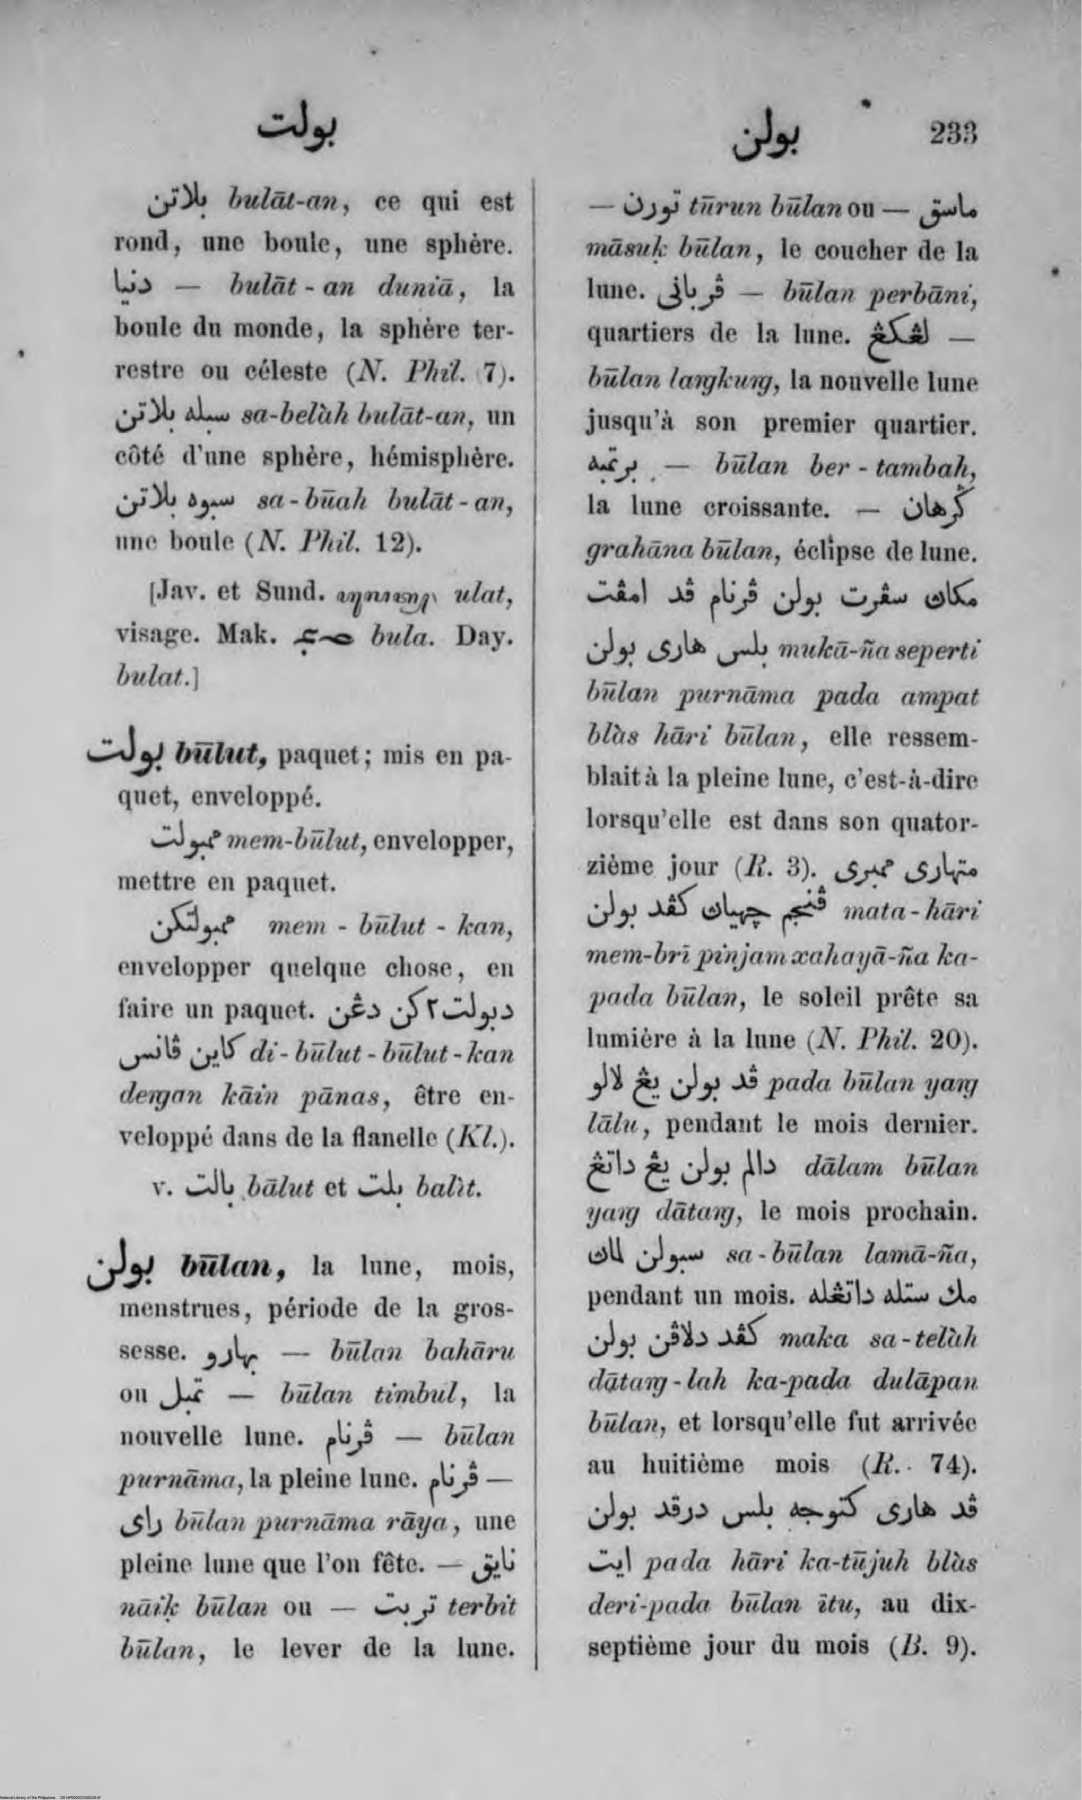 بولت
بولن 233
بلاتن bulāt-an, ce qui est
rond, une boule, une sphère.
دنيا — bulāt-an duniā, la
boule du monde, la sphère ter-
restre ou céleste (N. Phil. 7).
سبله بلاتن sa-belàh bulāt-an, un
côté d'une sphère, hémisphère.
سبوه بلاتن sa-būah bulāt-an,
une boule (N. Phil. 12).
[Jav. et Sund. ulat,
visage. Mak. bula. Day.
bulat.]
بولت būlut, paquet; mis en pa-
quet, enveloppé.
ممبولت mem-būlut, envelopper,
mettre en paquet.
ممبولتكن mem-būlut-kan,
envelopper quelque chose, en
faire un paquet. دبولت٢كن دڠن
كاين ڤانس di-būlut-būlut-kan
deṅgan kāin pānas, être en-
veloppé dans de la flanelle (Kl.).
v. بالت bālut et بلت balìt.
بولن būlan, la lune, mois,
menstrues, période de la gros-
sesse. بهارو — būlan bahāru
ou تمبل — būlan timbul, la
nouvelle lune. ڤرنام — būlan
purnāma, la pleine lune. ڤرنام —
راى būlan purnāma rāya, une
pleine lune que l'on fête. — نايق
nāiḳ būlan ou — تربت terbit
būlan, le lever de la lune.
— تورن tūrun būlan ou — ماسق
māsuḳ būlan, le coucher de la
lune. ڤربانى — būlan perbāni,
quartiers de la lune. لڠكڠ —
būlan laṅgkuṅg, la nouvelle lune
jusqu'à son premier quartier.
برتمبه — būlan ber-tambah,
la lune croissante. — ݢرهان
grahāna būlan, éclipse de lune.
مكاڽ سڤرت بولن ڤرنام ڤد امڤت
بلس هارى بولن mukā-ña seperti
būlan purnāma pada ampat
blàs hāri būlan, elle ressem-
blait à la pleine lune, c'est-à-dire
lorsqu'elle est dans son quator-
zième jour (R. 3). متهارى ممبرى
ڤنجم چهياڽ كڤد بولن mata-hāri
mem-brī pinjam xahayā-ña ka-
pada būlan, le soleil prête sa
lumière à la lune (N. Phil. 20).
ڤد بولن يڠ لالو pada būlan yaṅg
lālu, pendant le mois dernier.
دالم بولن يڠ داتڠ dālam būlan
yaṅg dātaṅg, le mois prochain.
سبولن لماڽ sa-būlan lamā-ña,
pendant un mois. مك ستله داتڠله
كڤد دلاڤن بولن maka sa-telàh
dātaṅg-lah ka-pada dulāpan
būlan, et lorsqu'elle fut arrivée
au huitième mois (R. 74).
ڤد هارى كتوجه بلس درڤد بولن
ايت pada hāri ka-tūjuh blàs
deri-pada būlan ītu, au dix-
septième jour du mois (B. 9).